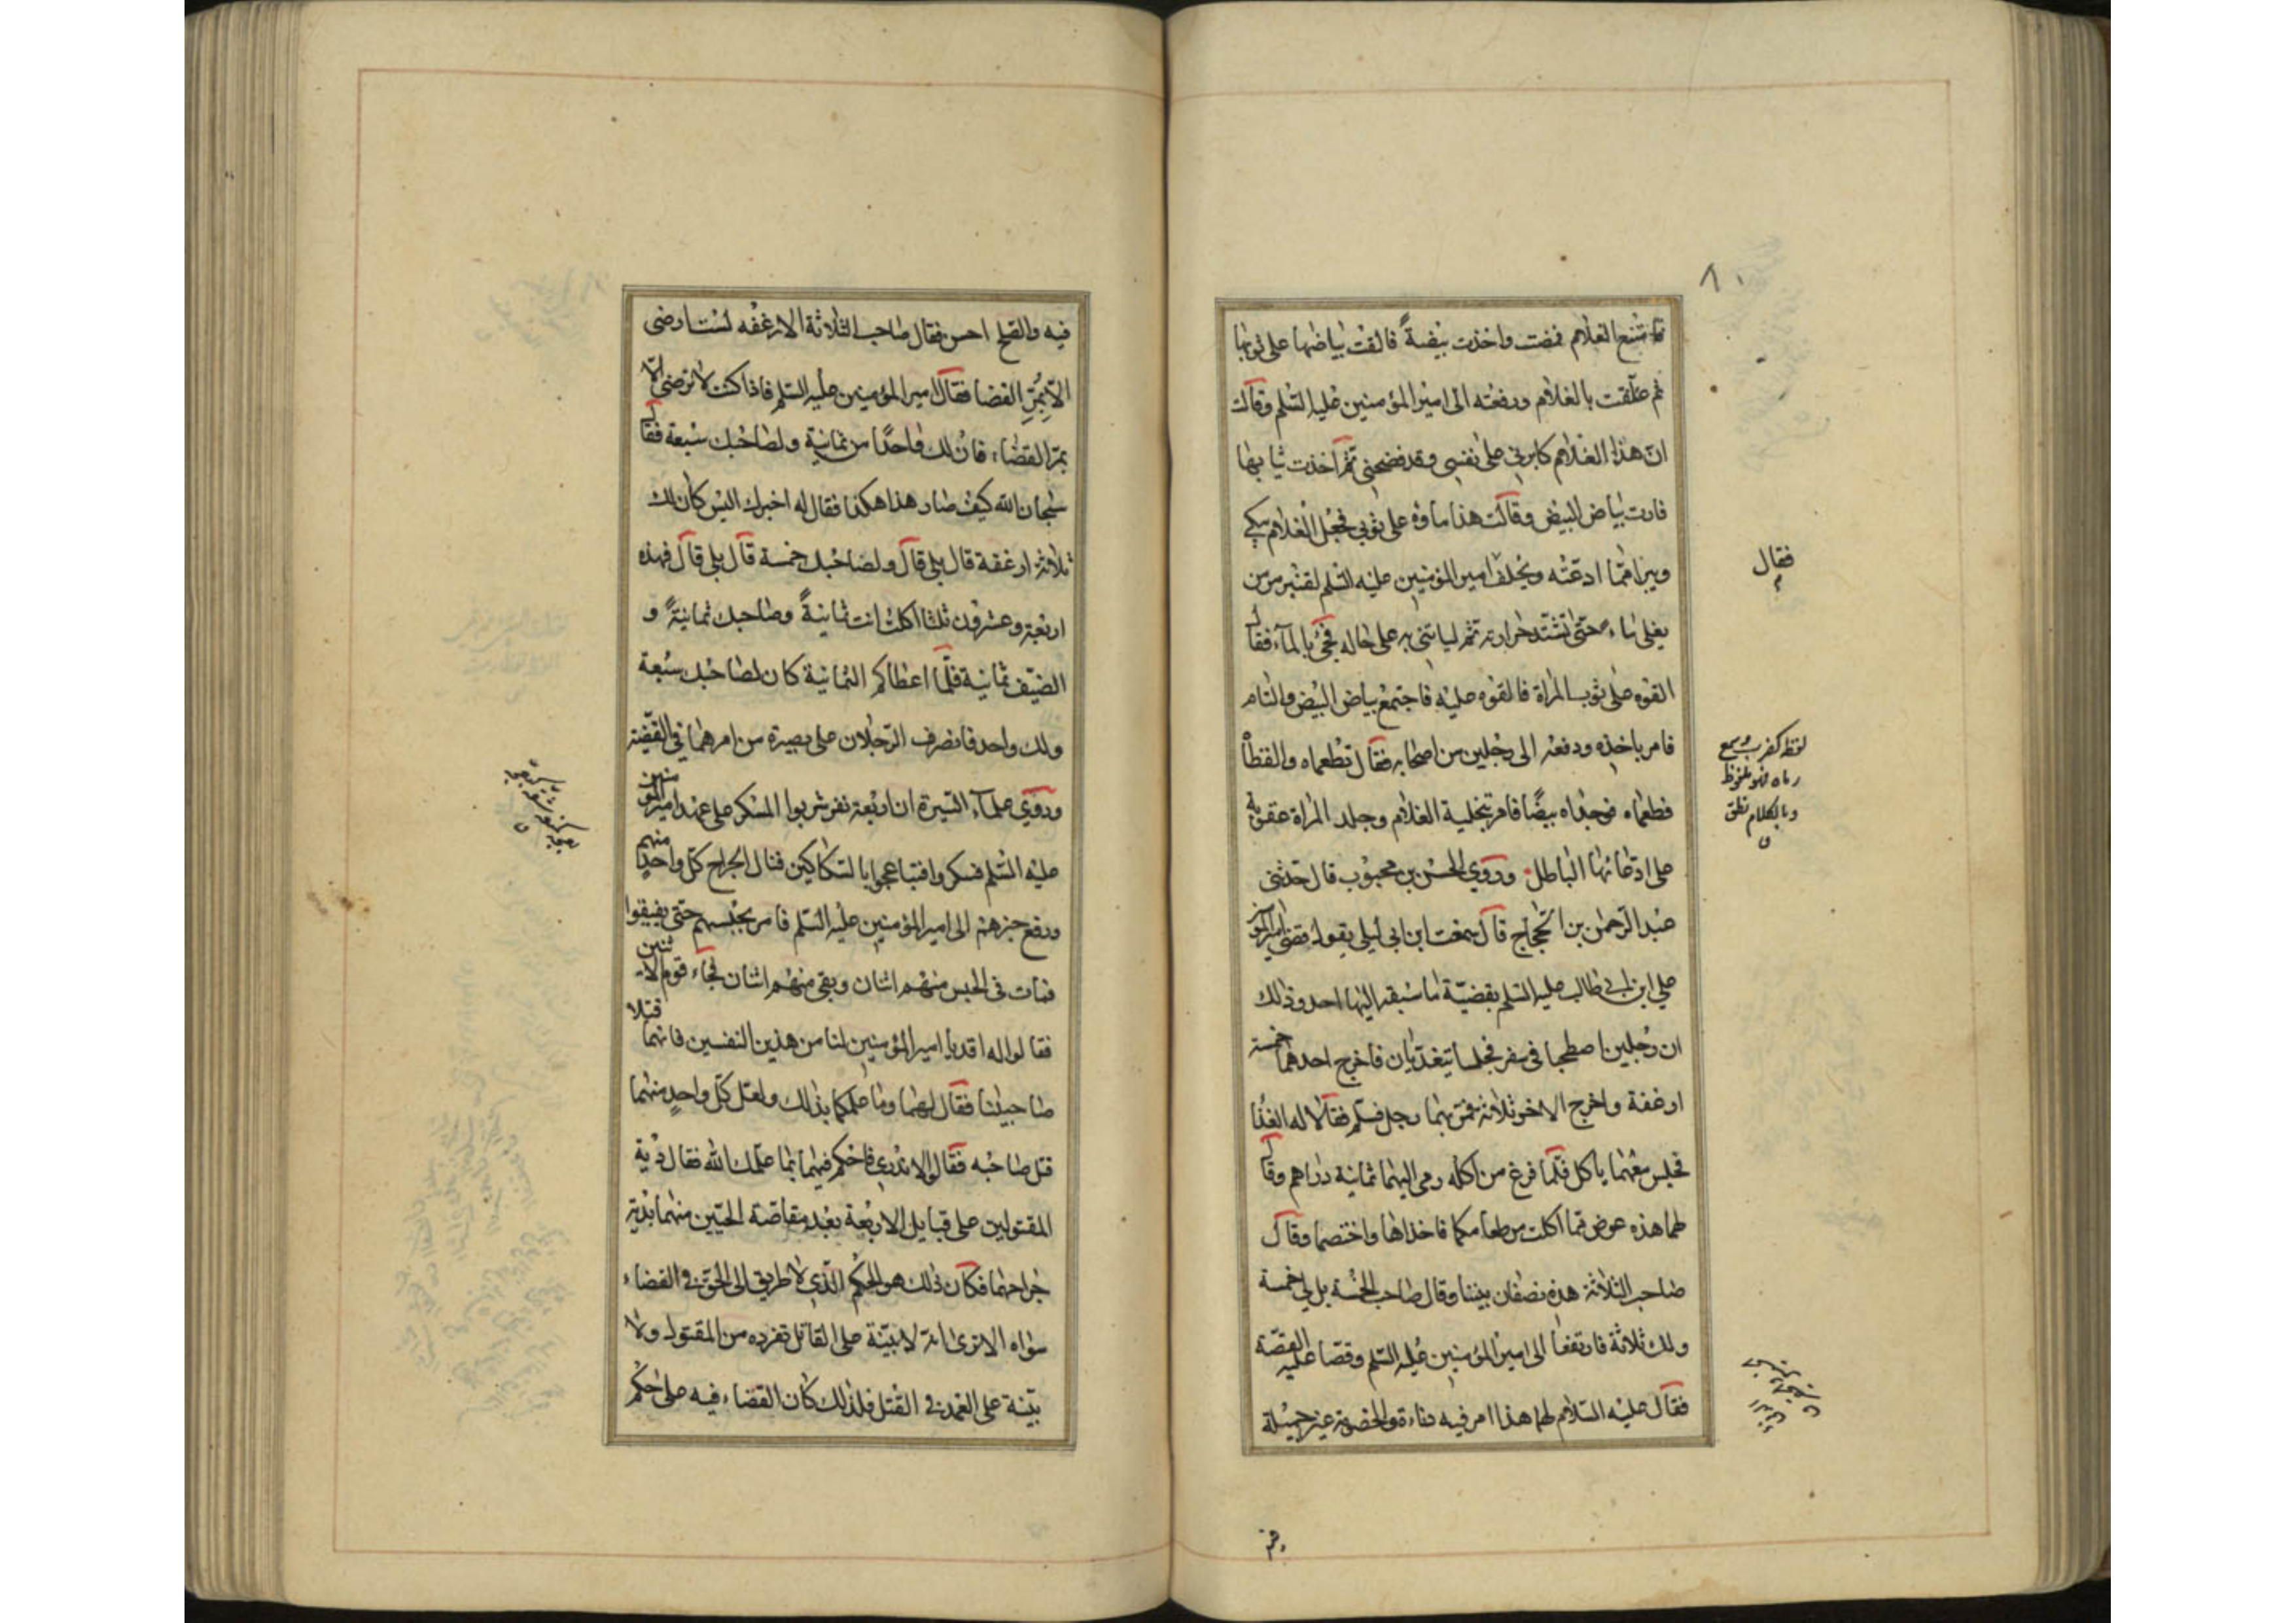 ٨٠
فامتنع الغلام فمضت واخذت بيضةً فالقت بياضها على ثوبها
ثم علّقت بالغلام ورفعته الى امير المؤمنين عليه السّلم وقالت
انّ هذا الغلام كابرني على نفسي وقد فضحني ثمّ اخذت ثيابها
فارت بياض البيض وقالت هذا ماؤه على ثوبي فجعل الغلام يبكي
ويبرا ممّا ادعّته ويحلف امير المؤمنين عليه السّلم لقنبر مر من
فقال
يغلي ماء حتّى تشتدّ حرارته ثمّ لياتني به على حاله فجئ بالمآء فقال
القوه على ثوب المراة فالقوه عليه فاجتمع بياض البيض والتام
فامر باخذه ودفعه الى رجلين من اصحابه فقال تطعماه والفظاه
لفظ كضرب وسمع
رماه فهو ملفوظ
وبالكلام نطق
ق
فطعماه فوجداه بيضًا فامر بتخلية الغلام وجلد المراة عقوبة
على ادعائها الباطل وروي الحسن بن محبوب قال حدّثنى
عبد الرّحمن بن الحجّاج قال سمعت ابن ابي ليلى يقول قضى امير المؤمنين
علي ابن ابي طالب عليه السّلم بقضيّة ما سبقه اليها احد وذلك
ان رجلين اصطحبا في سفر فجلسا يتغدّيان فاخرج احدهما خمسة
ارغفة واخرج الاخر ثلاثة فمرّ بهما رجل فسلّم فقالا له الغذا
فجلس معهما ياكل فلمّا فرغ من اكله رمى اليهما ثمانية دراهم وقال
لهما هذه عوض ممّا اكلت من طعامكما فاخذاها واختصما وقال
صاحب الثلاثة هذه نصفان بيننا وقال صاحب الخمسة بل لي خمسة
ولك ثلاثة فارتفعا الى امير المؤمنين عليه السّلم وقصّا عليه القصّة
فقال عليه السّلام لهما هذا امر فيه دناءة والخصومة غير جميلة
فيه والصّلح احسن فقال صاحب الثلاثة الارغفه لست ارضى
الّا بمُرّ القضا فقال امير المؤمنين عليه السّلم فاذا كنت لا ترضى الّا
بمرّ القضاء فانّ لك واحدًا من ثمانية ولصاحبك سبعة فقال
سبحان الله كيف صار هذا هكذا فقال له اخبرك اليس كان لك
ثلاثة ارغفة قال بلى قال ولصاحبك خمسة قال بلى قال فهذه
اربعة وعشرون ثلثا اكلت انت ثمانيةً وصاحبك ثمانيةً و
الضيّف ثمانية فلمّا اعطاكم الثمانية كان لصاحبك سبعة
ولك واحد فانصرف الرّجلان على بصيرة من امرهما في القضيّة
وروي علمآء السّيرة ان اربعة نفر شربوا المسكر على عهد امير المؤمنين
عليه السّلم فسكروا فتباعجوا بالسّكاكين فنال الجراح كلّ واحدٍ منهم
ورفع خبرهم الى امير المؤمنين عليه السّلم فامر بحبسهم حتّى يفيقوا
فمات في الحبس منهم اثنان وبقى منهم اثنان فجاء قوم الاثنين
فقالوا له اقد يا امير المؤمنين لنا من هذين النفسين فانهما قتلا
صاحبينا فقال لهما وما علمكما بذلك ولعل كلّ واحدٍ منهما
قتل صاحبه فقالوا لا ندري فاحكم فيهما بما علّمك الله فقال دية
المقتولين على قبايل الاربعة بعد مقاصّة الحيّين منهما بدية
جراحهما فكان ذلك هو الحكم الّذي لا طريق الى الحقّ في القضاء
سواه الا ترى انّه لا بيّنة على القاتل تفرده من المقتول ولا
بيّنة على العمد في القتل فلذلك كان القضاء فيه على حكم